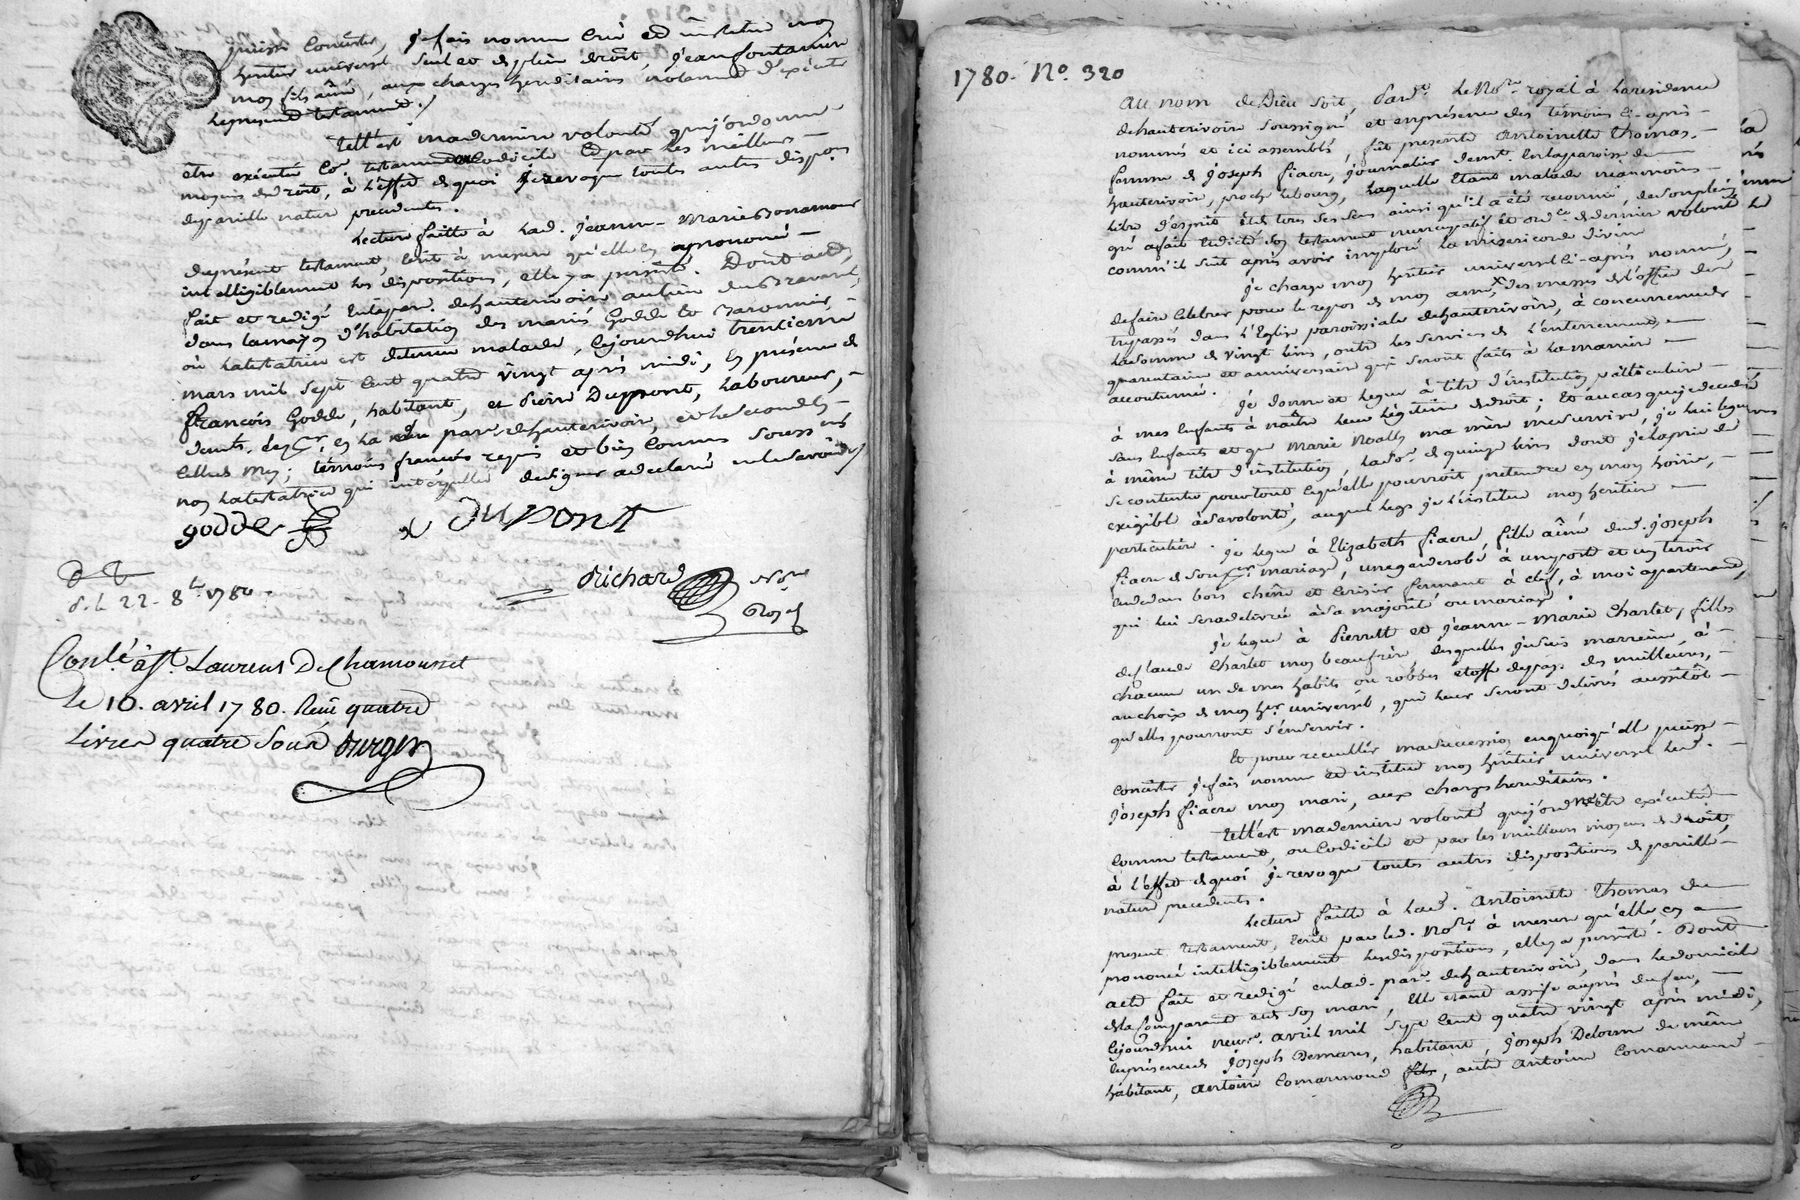 puisse Consister, je fais nomme Créé et institue mon
héritier universel, seul et de plein droit, jean fontanière
mon fils aîné, aux charges héréditaires notamment d'exécuter
le présent testament./
Tell'est ma dernière volonté quej'ordonne
être exécutée Co.e testament ou Codicile et par les meilleurs
moyens de droit, à l'effet de quoi je revoque toutes autres dispo.ns
de pareille nature précédentes.
Lecture faitte à lad. jeanne-Marie Bonamour
du présent testament, écrit à mesure qu'elle en a prononcé
intelligiblement les dispositions, elle y a persisté. Dont acte,
fait et redigé en la par. de hauterivoire au lieu du
dans la maison d'habitation des mariés Godde et
où la testatrice est detenue malade, cejourdhui trentieme
mars mil sept cent quatre vingt après midi, En présence de
françois Godde, habitant, et Pierre Dupont, Laboureur,
dem.ts, le p.er en la de par. de hauterivoire, et le second en
celle de My; témoins françois requis et bien connus soussignés
non la testatrice qui interpellée de signer a déclaré ne le savoir ./
godde Dupont
Richard No.re Royal
d. l. 22. 8.bre 1780.
Conlé à St. Laurens De Chamousset
Le 10. avril 1780. Reçu quatre
Livres quatre sous
1780. No. 320
Au nom de Dieu soit, Pard.t le No.re royal à la residence
de hauterivoire soussigné et en présence des témoins ci-après
nommés et ici assemblés, fut presente Antoinette Thomas,
femme de joseph fiacre, journalier dem.t en la paroisse de
hauterivoire, proche le bourg, laquelle étant malade néanmoins
libre d'esprit et de tous ses sens ainsi qu'il a été reconnu, de son plein
gré a fait et dicté son testament nuncupatif et ord.ce de derniere volonté
comm'il suit après avoir imploré la misericorde divine
Je charge mon héritier universel ci-après nommé,
de faire celebrer pour le repos de mon ame, des messes de l'office des
trépassés dans l'Eglise paroissiale de hauterivoire, à concurrence de
la somme de vingt livres, outre les services de l'enterrement,
quarantaine et anniversaire qui seront faits à la maniere
accoutumée.
Je donne et legue à titre d'institution particuliere
à mes Enfants à naître leur légitime de droit; Et au cas que je decede
sans Enfants et que Marie Noally ma mère me survive, je lui legue
à même titre d'institution, la so.e de quinze livres dont je la prie de
se contenter pour tout ce qu'elle pourroit pretendre en mon hoirie,
exigible à sa volonté, auquel legs je l'institue mon heritiere
particuliere. Je legue à Elizabeth fiacre, fille aînée dud. joseph
fiacre de son p.er mariage, une garderobe à une porte et un tiroir
au dedans bois chêne et cerisier fermant à clef, à moi appartenant,
qui lui sera delivrée à sa majorité ou mariage.
Je legue à Pierrette et jeanne-Marie Charlet, filles
de Claude Charlet mon beaufrère desquelles je suis marreine, à
chacune un de mes habits ou robbes etoffe de pays. des meilleures,
au choix de mon h.er universel, qui leur seront delivrés aussitôt
qu'elles pourront s'en servir.
Et pour recueillir ma succession en quoi qu'elle puisse
consister je fais nomme et institue mon héritier universel led.
joseph fiacre mon mari, aux charges hereditaires.
Tell'est ma derniere volonté que j'ordonne être exécutée
comme testament, ou Codicile et par les meilleurs moyens de droit,
à l'effet de quoi je revoque toutes autres dispositions de pareille
nature precedentes.
Lecture faitte à lad. Antoinette Thomas du
present testament, écrit par led. No.re à mesure qu'elle en a
prononcé intelligiblement les dispositions, elle y a persisté. Dont
acte fait et redigé en lad. par. de hauterivoire, dans le domicile
de la Comparante et de son mari, elle étant assise auprès du feu,
cejourdhui neuv.e avril mil sept cent quatre vingt après midi,
en présence de joseph Demares, habitant, joseph Delorme de même
habitant, Antoine Comarmond fils, autre Antoine Comarmond